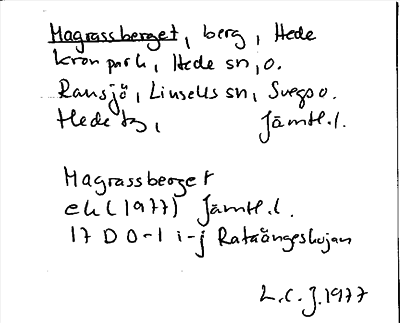 Magrassberget, berg, Hede
kronpark, Hede sn, o.
Ransjö, Linsells sn, Svegs o.
Hede tg, Jämtl. l.
Magrassberget
ek (1977) Jämtl. l.
17 D 0-1 i-j Rataängeskojan
L.C.J. 1977